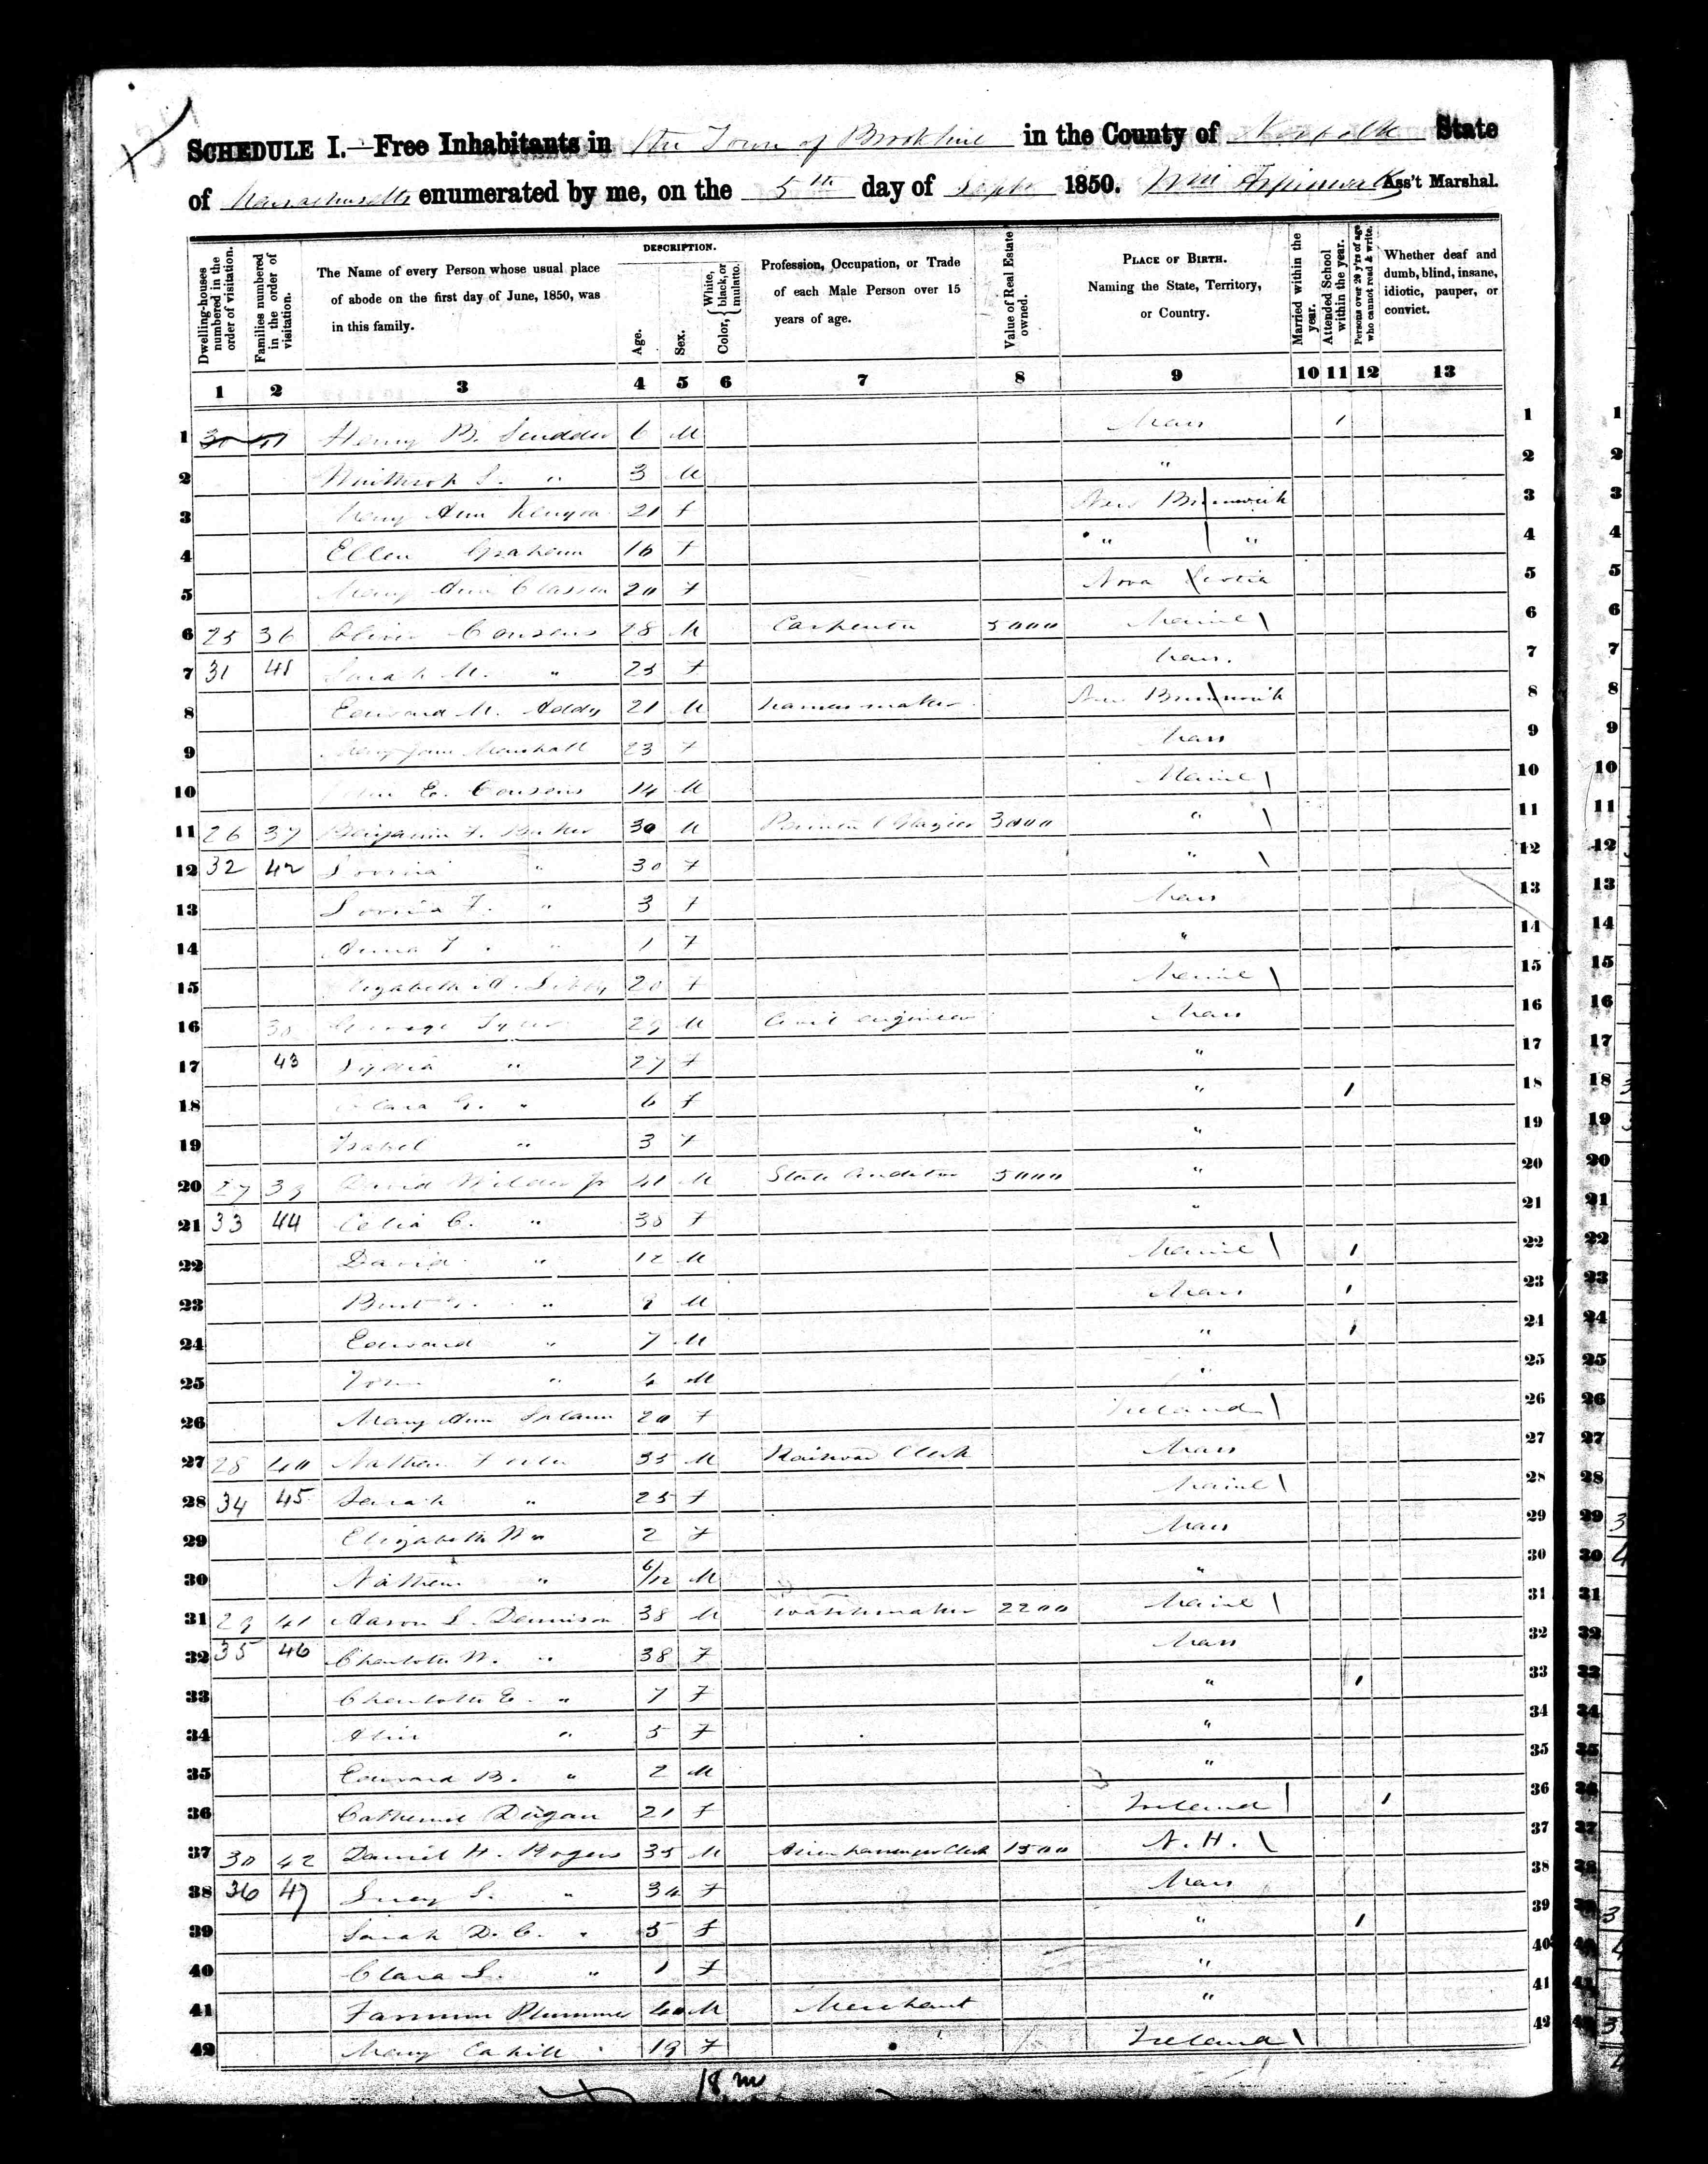 SCHEDULE I.—Free Inhabitants in the Town of Brookline in the County of Norfolk State
of Massachusetts enumerated by me, on the 5th day of Septr 1850. Wm Aspinwall Ass't Marshal.
Dwelling-houses numbered in the order of visitation.
Families numbered in the order of visitation.
The Name of every Person whose usual place of abode on the first day of June, 1850, was in this family.
DESCRIPTION.
Age.
Sex.
Color, { White, black, or mulatto.
Profession, Occupation, or Trade of each Male Person over 15 years of age.
Value of Real Estate owned.
PLACE OF BIRTH. Naming the State, Territory, or Country.
Married within the year.
Attended School within the year.
Persons over 20 y'rs of age who cannot read & write.
Whether deaf and dumb, blind, insane, idiotic, pauper, or convict.
1 2 3 4 5 6 7 8 9 10 11 12 13
1 Henry B. Scudder 6 M Mass 1 1
2 Winthrop S. " 3 M " 2
3 Mary Ann 21 F New Brunswick 3
4 Ellen Graham 16 F " " 4
5 Mary Ann 20 F Nova Scotia 5
6 25 36 Oliver Cousens 28 M Carpenter 5000 Maine 6
7 31 41 Sarah M. " 25 F Mass. 7
8 Edward M. Addy 21 M Harness maker New Brunswick 8
9 Mary Jane Marshall 23 F Mass 9
10 John E. Cousens 14 M Maine 10
11 26 37 Benjamin F. Baker 30 M Painter & Glazier 3000 " 11
12 32 42 " 30 F " 12
13 F. " 3 F Mass 13
14 Anna T. " 1 F " 14
15 Elizabeth A. Libby 20 F Maine 15
16 38 George 29 M Civil engineer Mass 16
17 43 Lydia " 27 F " 17
18 Clara G. " 6 F " 1 18
19 Isabel " 3 F " 19
20 27 39 David Wilder Jr 41 M State Auditor 5000 " 20
21 33 44 Celia C. " 38 F " 21
22 David " 12 M Maine 1 22
23 Burt G. " 9 M Mass 1 23
24 Edward " 7 M " 1 24
25 John " 4 M " 25
26 Mary Ann 20 F Ireland 26
27 28 40 Nathan 35 M Railroad Clerk Mass 27
28 34 45 Sarah " 25 F Maine 28
29 Elizabeth W " 2 F Mass 29
30 Nathan " 6/12 M " 30
31 29 41 Aaron L. Dennison 38 M Watchmaker 2200 Maine 31
32 35 46 Charlotte W. " 38 F Mass 32
33 Charlotte E. " 7 F " 1 33
34 Alice " 5 F " 34
35 Edward B. " 2 M " 35
36 Catherine Dugan 21 F Ireland 1 36
37 30 42 Daniel H. Rogers 35 M Clerk 1500 N. H. 37
38 36 47 Lucy S. " 34 F Mass 38
39 Sarah D. C. " 5 F " 1 39
40 Clara L. " 1 F " 40
41 Farnum Plummer 40 M Merchant " 41
42 Mary Cahill 19 F Ireland 42
18 m